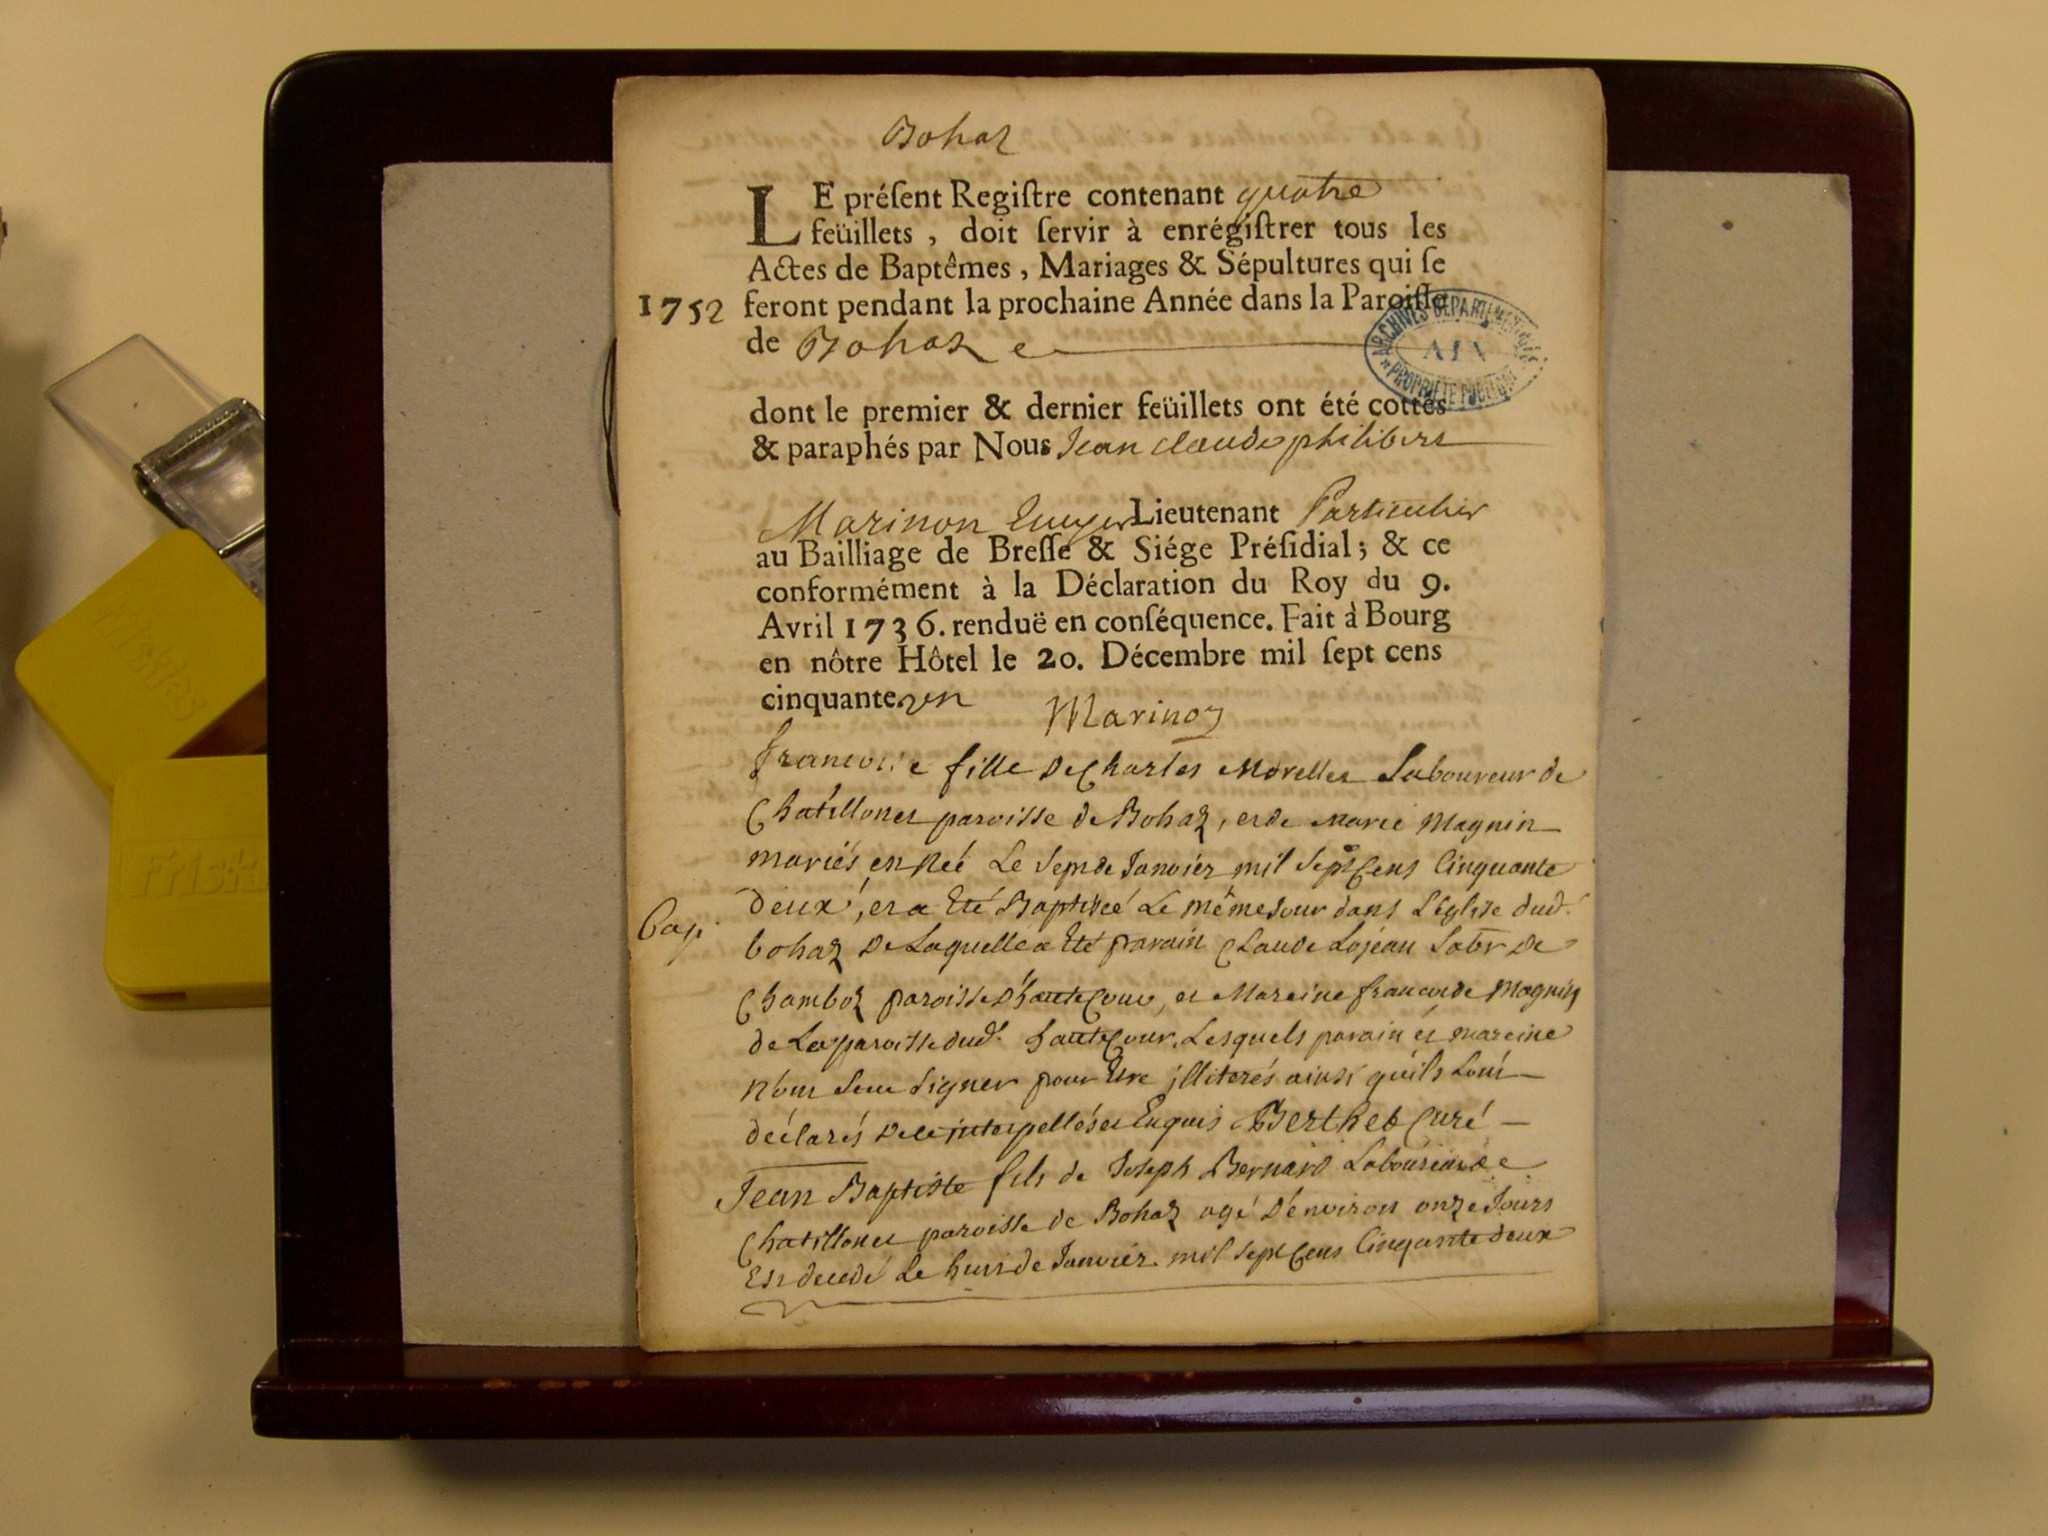 Bohaz
LE préſent Regiſtre contenant quatre
feüillets, doit ſervir à enrégiſtrer tous les
Actes de Baptêmes, Mariages & Sépultures qui ſe
1752 feront pendant la prochaine Année dans la Paroiſſe
de Bohaz
ARCHIVES DÉPARTEMENTALES
AIN
PROPRIÉTÉ PUBLIQUE
dont le premier & dernier feüillets ont été cottés
& paraphés par Nous Jean Claude philibert
Marinon Ecuyer Lieutenant Particulier
au Bailliage de Breſſe & Siége Préſidial; & ce
conformément à la Déclaration du Roy du 9.
Avril 1736. renduë en conſéquence. Fait à Bourg
en nôtre Hôtel le 20. Décembre mil ſept cens
cinquante un
Marinon
francoise fille de Charles Morellet Laboureur de
Chatillonet paroisse de Bohaz, et de Marie Magnin
mariés est Neé Le Sept de Janvier mil Sept Cens Cinquante
Bap. deux, et a Eté Baptiseé Le même Jour dans L'église dud.
bohaz De Laquelle a Eté parain Claude Lojeau Labr De
Chamboz paroisse d'hauteCour, et Mareine francoise Magnin
de La paroisse dud. hauteCour, Lesquels parain et mareine
n'ont Sceu Signer pour Etre jlliterés ainsi quils L'ont
déclarés De ce interpellés et Enquis Berthet Curé
Jean Baptiste fils de Joseph Bernard Laboureur de
Chatillonet paroisse de Bohaz agé D'environ onze Jours
Est decedé Le huit de Janvier mil Sept Cens Cinquante deux
Friskies
Friski